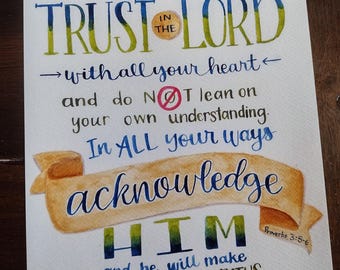 TRUST IN THE LORD
→with all your heart←
and do NOT lean on
your own understanding.
In ALL your ways
acknowledge
HIM
Proverbs 3:5-6
and he will make